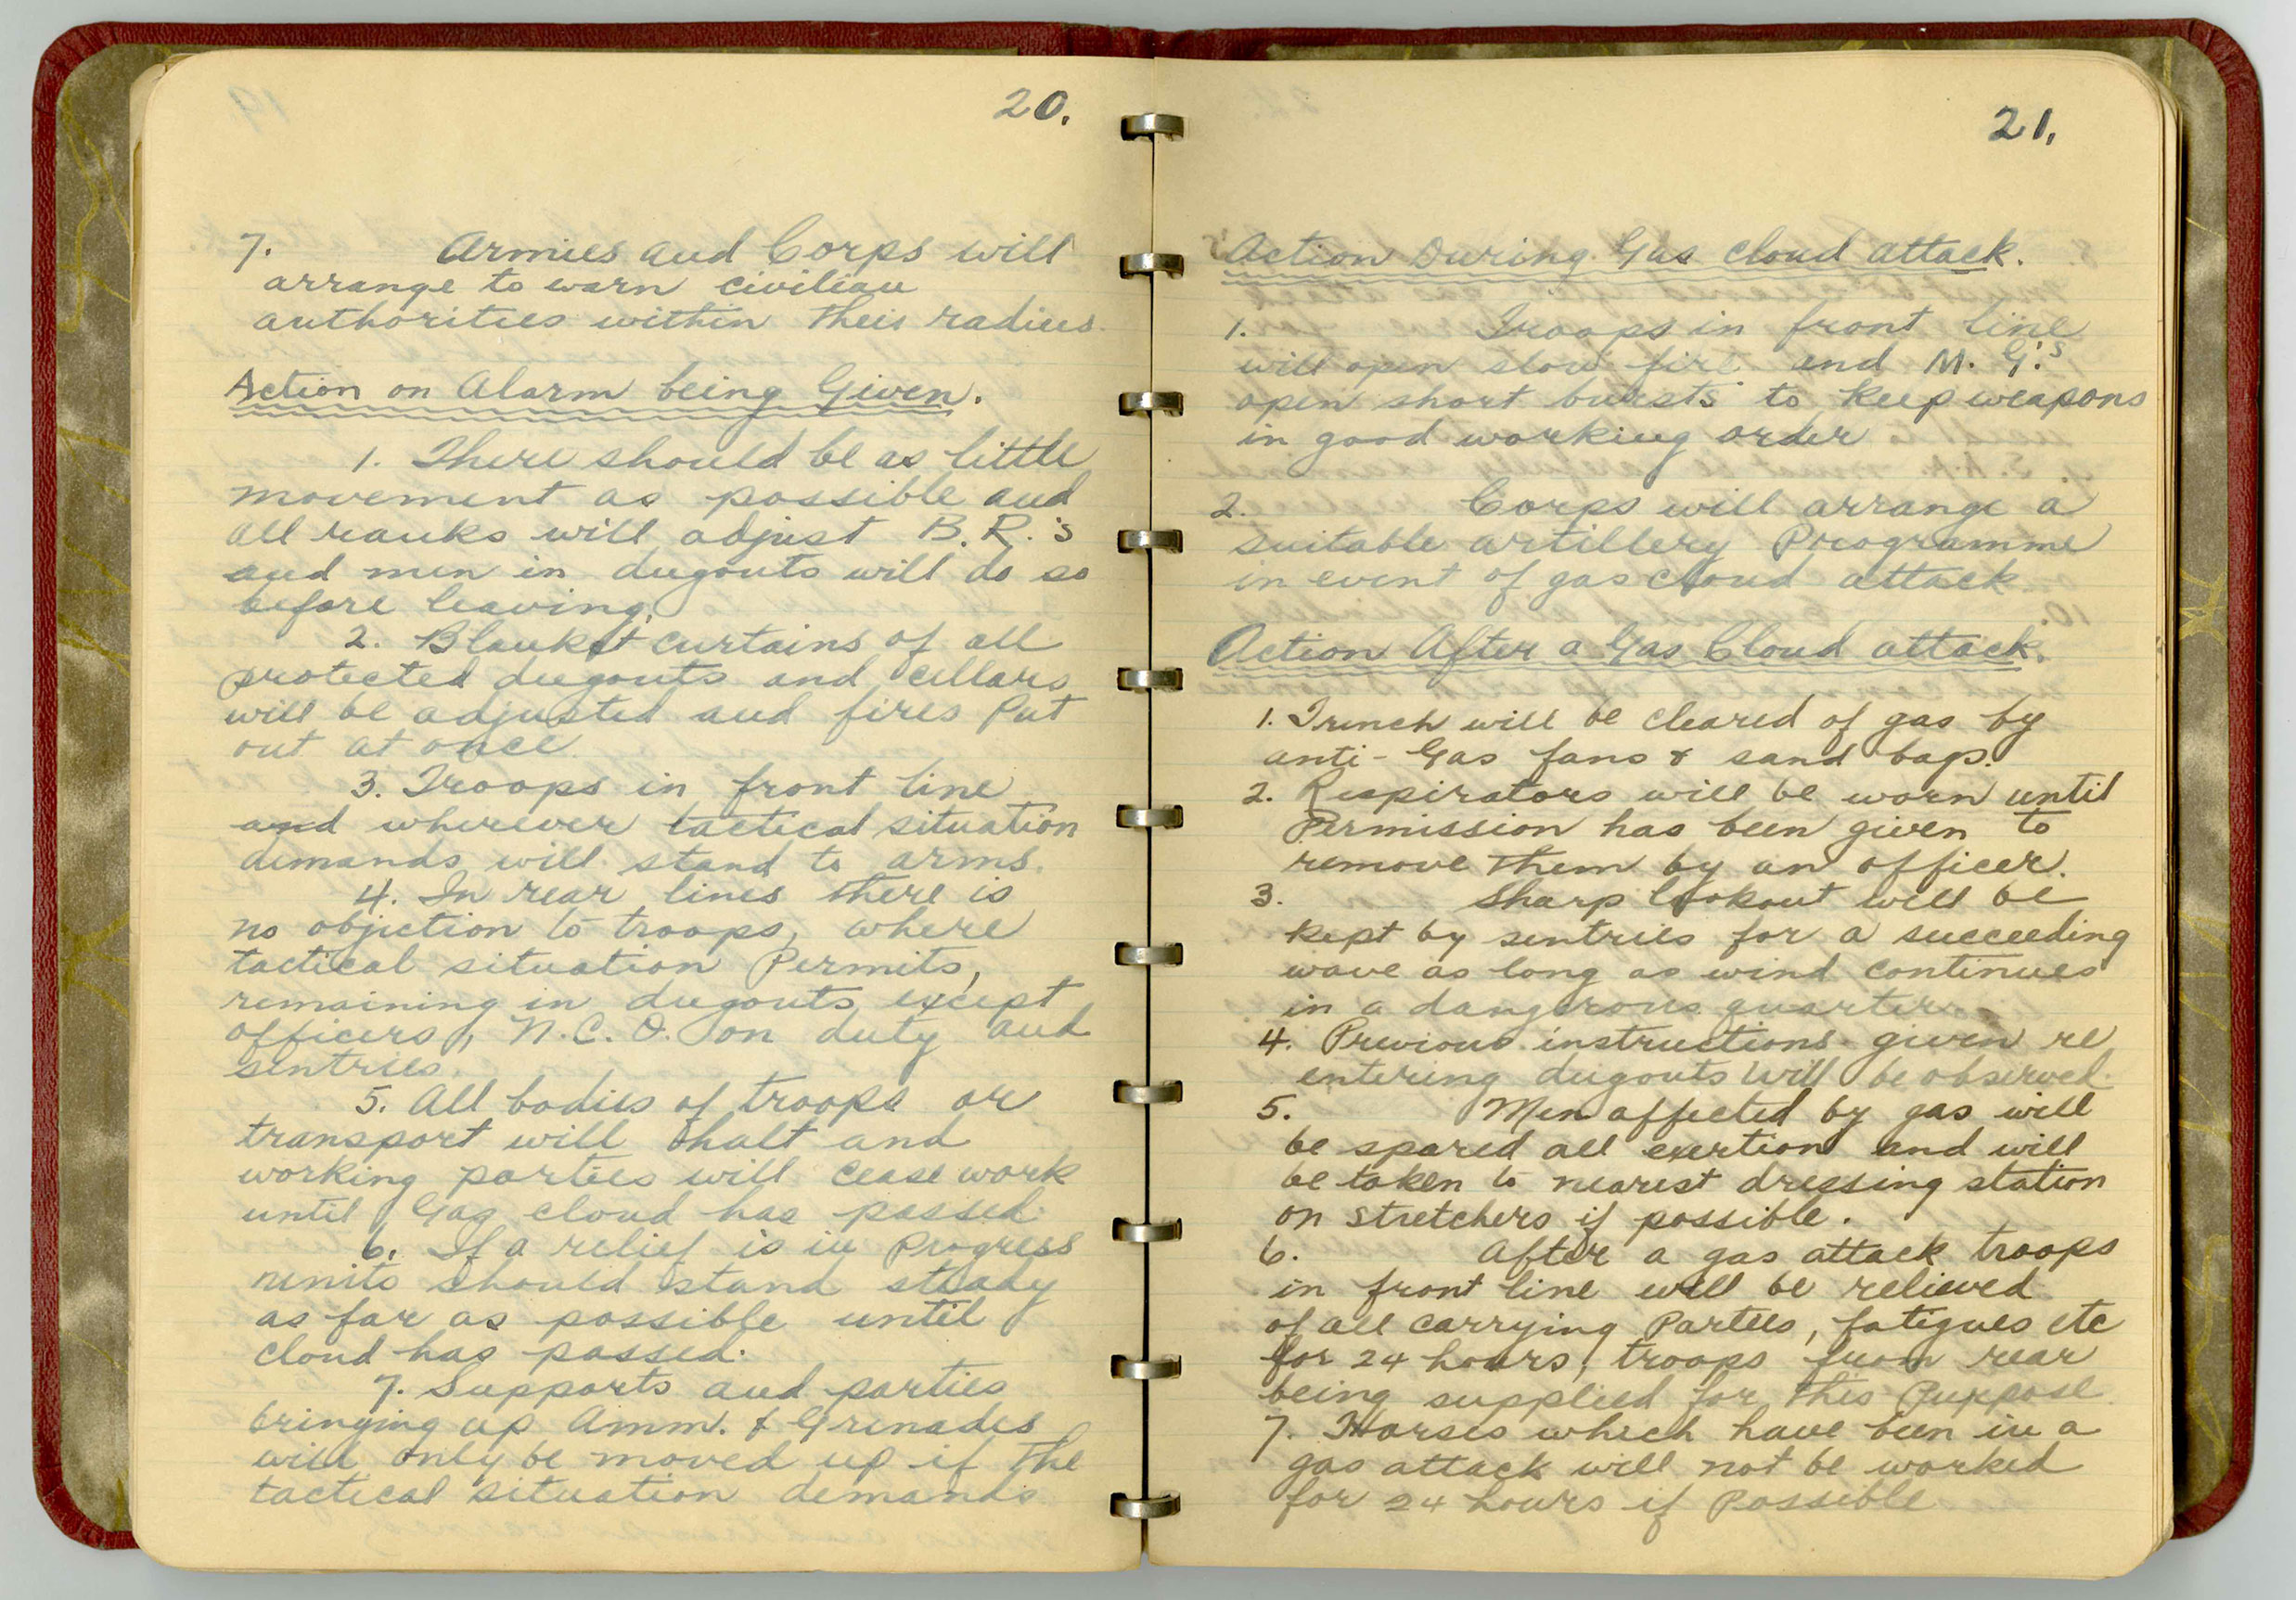 20.
7. Armies and Corps will
arrange to warn civilian
authorities within their radius.
Action on Alarm being Given.
1. There should be as little
movement as possible and
all ranks will adjust B. R.'s
and men in dugouts will do so
before leaving.
2. Blanket curtains of all
protected dugouts and cellars
will be adjusted and fires Put
out at once.
3. Troops in front line
and wherever tactical situation
demands will stand to arms.
4. In rear lines there is
no objection to troops, where
tactical situation Permits,
remaining in dugouts except
officers, N.C.O. on duty and
sentries.
5. All bodies of troops or
transport will halt and
working parties will cease work
until Gas cloud has passed.
6. If a relief is in Progress
units should stand steady
as far as possible until
cloud has passed.
7. Supports and parties
bringing up Amm. & Grenades
will only be moved up if the
tactical situation demands
21.
Action During Gas Cloud attack.
1. Troops in front line
will open slow fire and M. G.'s
open short bursts to keep weapons
in good working order
2. Corps will arrange a
suitable artillery Programme
in event of gas cloud attack
Action After a Gas Cloud attack.
1. Trench will be cleared of gas by
anti-Gas fans & sand bags.
2. Respirators will be worn until
Permission has been given to
remove them by an officer.
3. Sharp lookout will be
kept by sentries for a succeeding
wave as long as wind continues
in a dangerous quarter.
4. Previous instructions given re
entering dugouts will be observed.
5. Men affected by gas will
be spared all exertion and will
be taken to nearest dressing station
on stretchers if possible.
6. After a gas attack troops
in front line will be relieved
of all carrying Parties, fatigues etc
for 24 hours, troops from rear
being supplied for this Purpose.
7. Horses which have been in a
gas attack will not be worked
for 24 hours if Possible